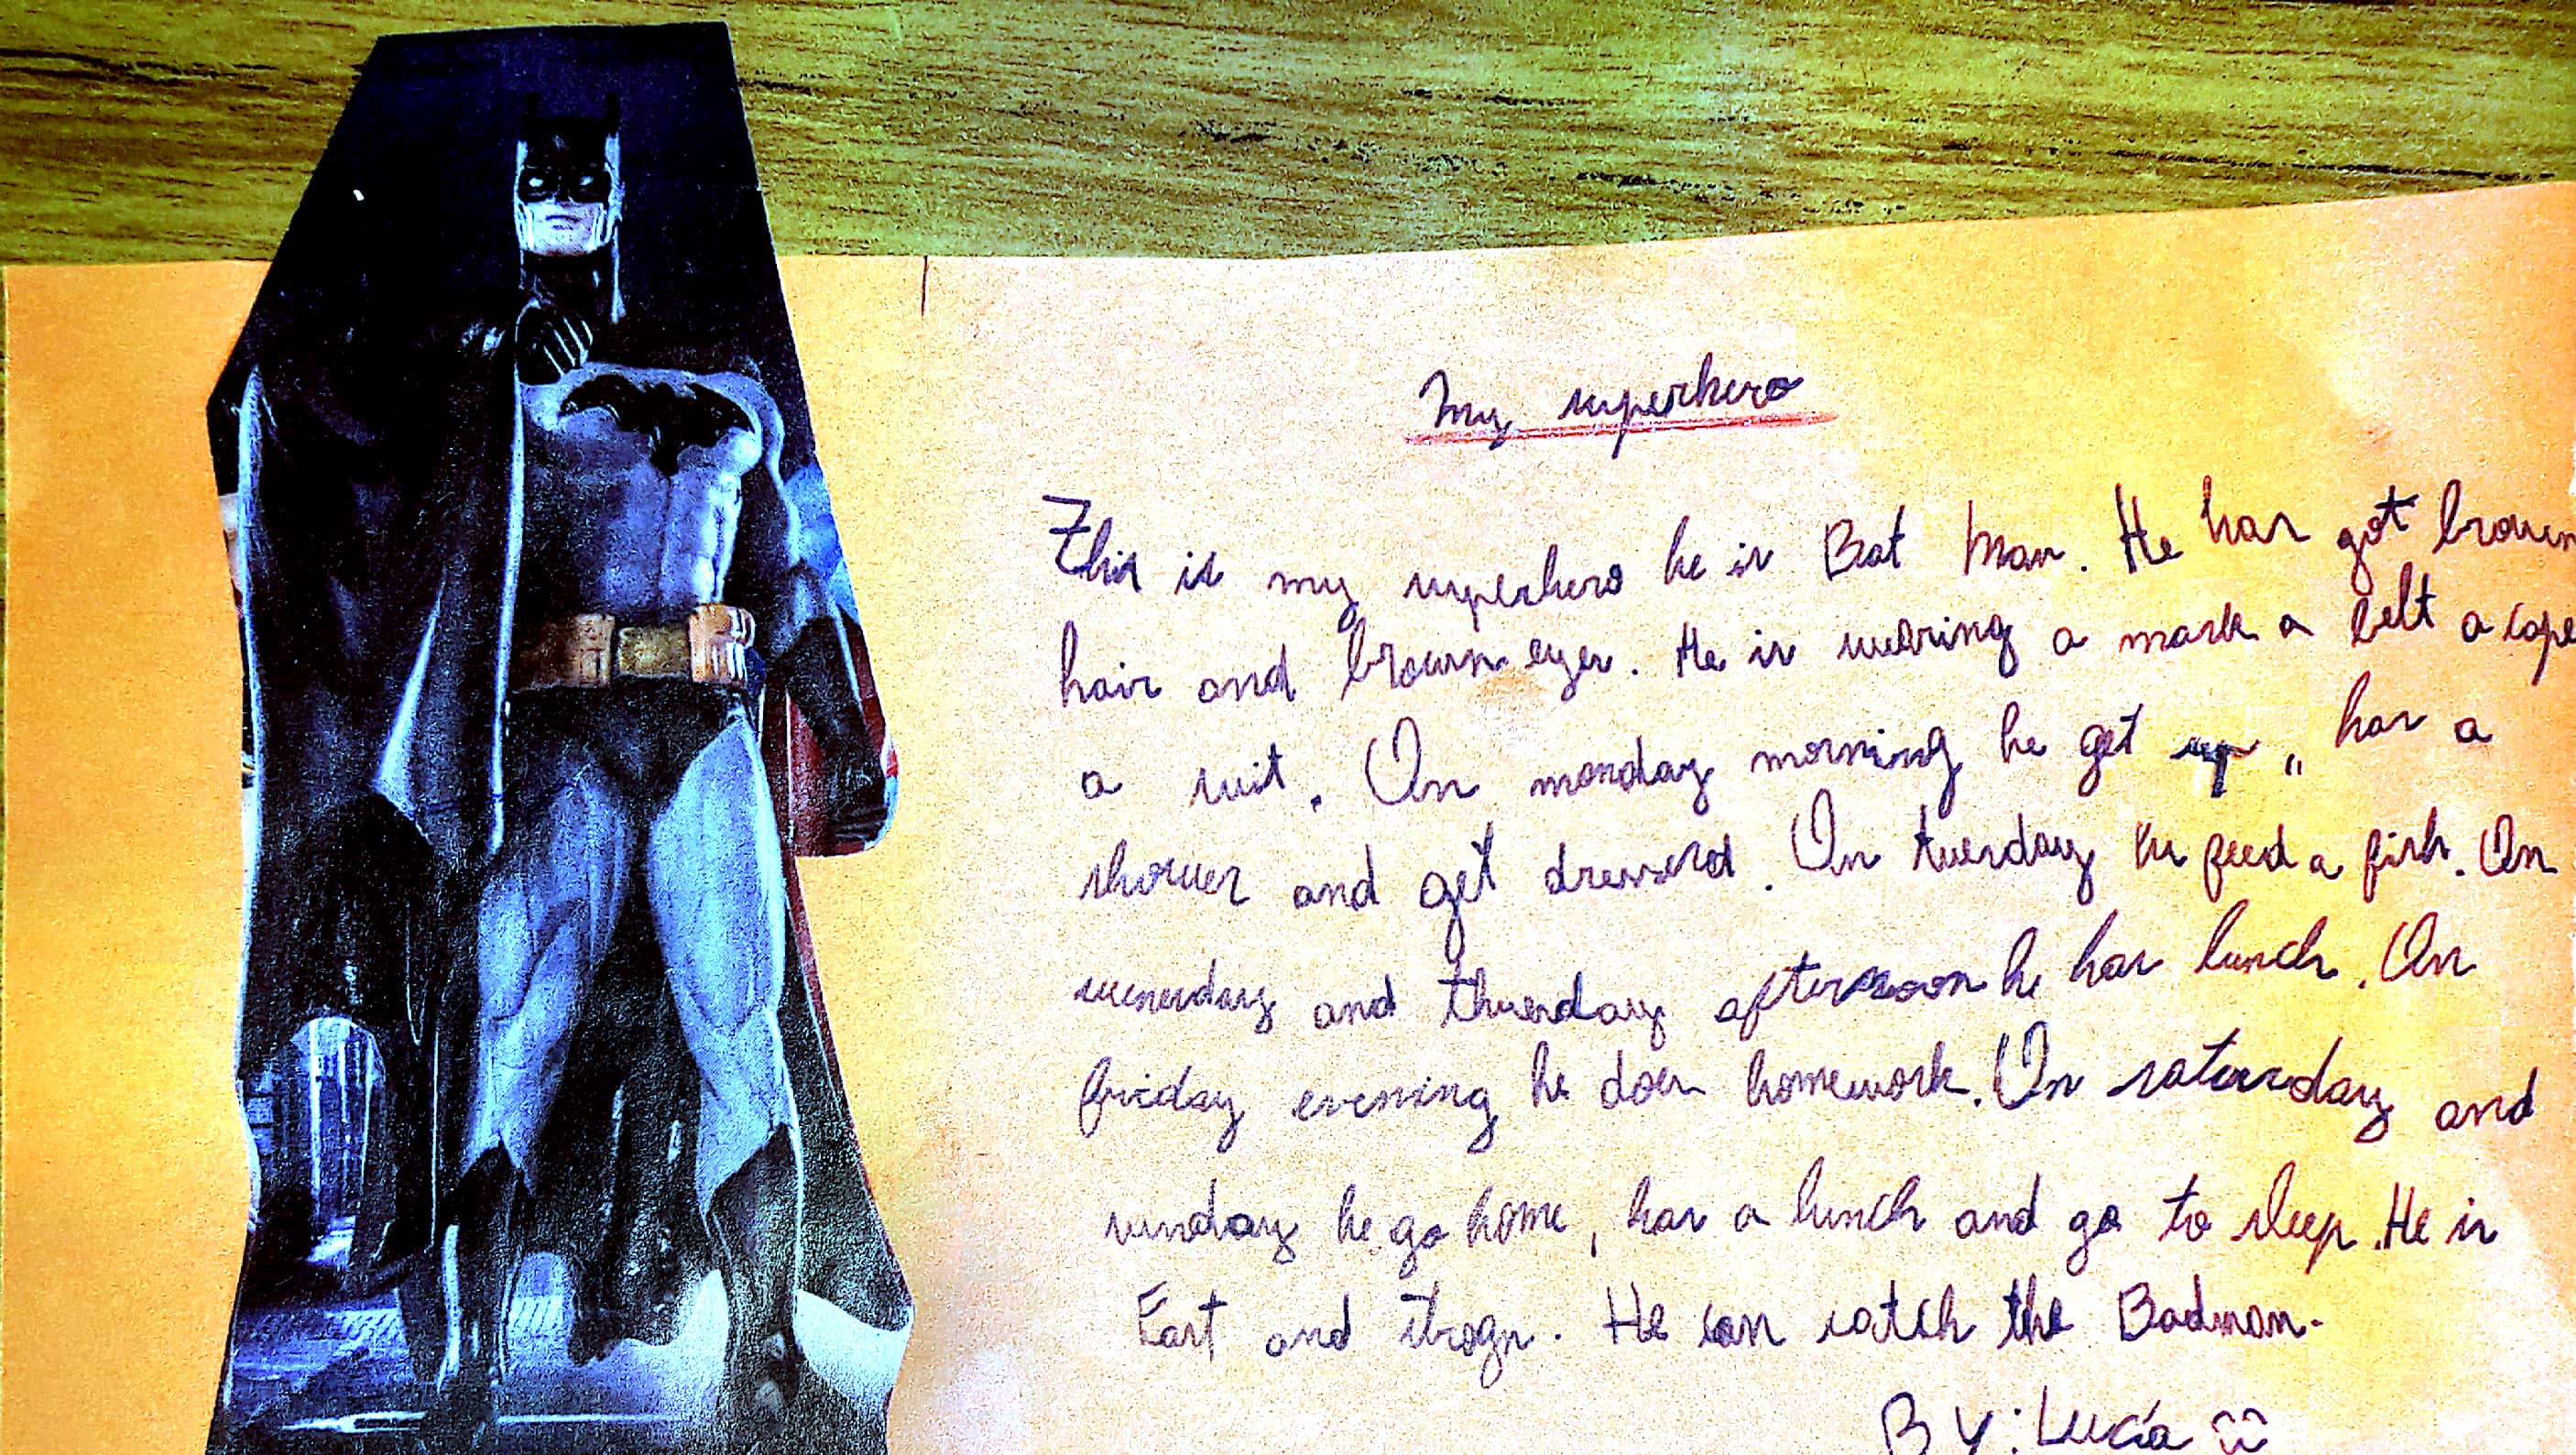 My superhero
This is my superhero he is Bat Man. He has got brown
hair and brown eyes. He is wearing a mask a belt a cape
a suit. On monday morning he get up ,, has a
shower and get dressed. On tuesday he feed a fish. On
wenesday and thuesday afternoon he has lunch. On
friday evening he does homework. On saturday and
sunday he go home, has a lunch and go to sleep. He is
East and strogn. He can catch the Badman.
BY: Lucía